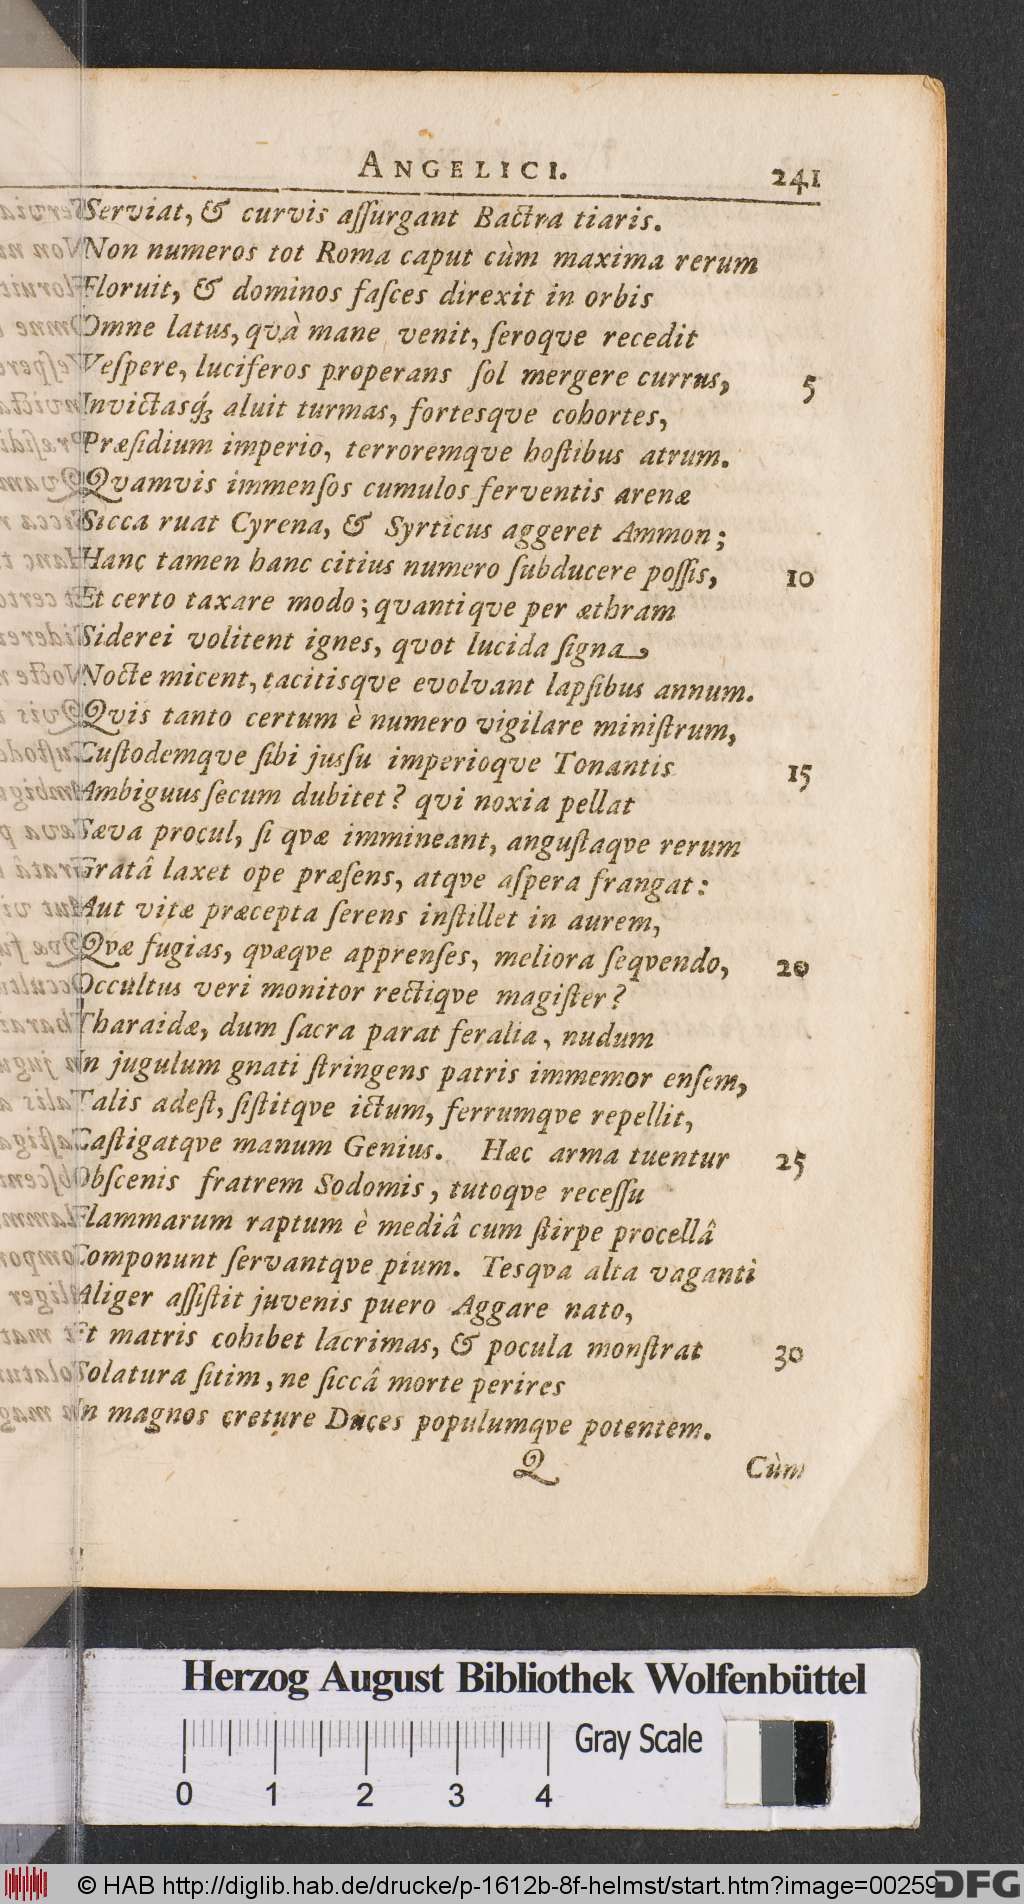 ANGELICI. 241
Serviat, & curvis aſſurgant Bactra tiaris.
Non numeros tot Roma caput cùm maxima rerum
Floruit, & dominos faſces direxit in orbis
Omne latus, quà mane venit, ſeroqve recedit
Veſpere, luciferos properans ſol mergere currus, 5
Invictasq́; aluit turmas, fortesqve cohortes,
Præſidium imperio, terroremqve hoſtibus atrum.
Qvamvis immenſos cumulos ferventis arenæ
Sicca ruat Cyrena, & Syrticus aggeret Ammon;
Hanc tamen hanc citius numero ſubducere poſſis, 10
Et certo taxare modo; qvantiqve per æthram
Siderei volitent ignes, qvot lucida ſigna,
Nocte micent, tacitisqve evolvant lapſibus annum.
Qvis tanto certum è numero vigilare miniſtrum,
Cuſtodemqve ſibi jusſu imperioqve Tonantis 15
Ambiguus ſecum dubitet? qvi noxia pellat
Sæva procul, ſi qvæ immineant, anguſtaqve rerum
Gratâ laxet ope præſens, atqve aſpera frangat:
Aut vitæ præcepta ſerens inſtillet in aurem,
Qvæ fugias, qvæqve apprenſes, meliora ſeqvendo, 20
Occultus veri monitor rectiqve magiſter?
Tharaidæ, dum ſacra parat feralia, nudum
In jugulum gnati ſtringens patris immemor enſem,
Talis adeſt, ſiſtitqve ictum, ferrumqve repellit,
Caſtigatqve manum Genius. Hæc arma tuentur 25
Obſcenis fratrem Sodomis, tutoqve receſſu
Flammarum raptum è mediâ cum ſtirpe procellâ
Componunt ſervantqve pium. Tesqva alta vaganti
Aliger aſſiſtit juvenis puero Aggare nato,
Et matris cohibet lacrimas, & pocula monſtrat 30
Solatura ſitim, ne ſiccâ morte perires
In magnos creture Duces populumqve potentem.
Q Cùm
Herzog August Bibliothek Wolfenbüttel
Gray Scale
0 1 2 3 4
© HAB http://diglib.hab.de/drucke/p-1612b-8f-helmst/start.htm?image=00259
DFG